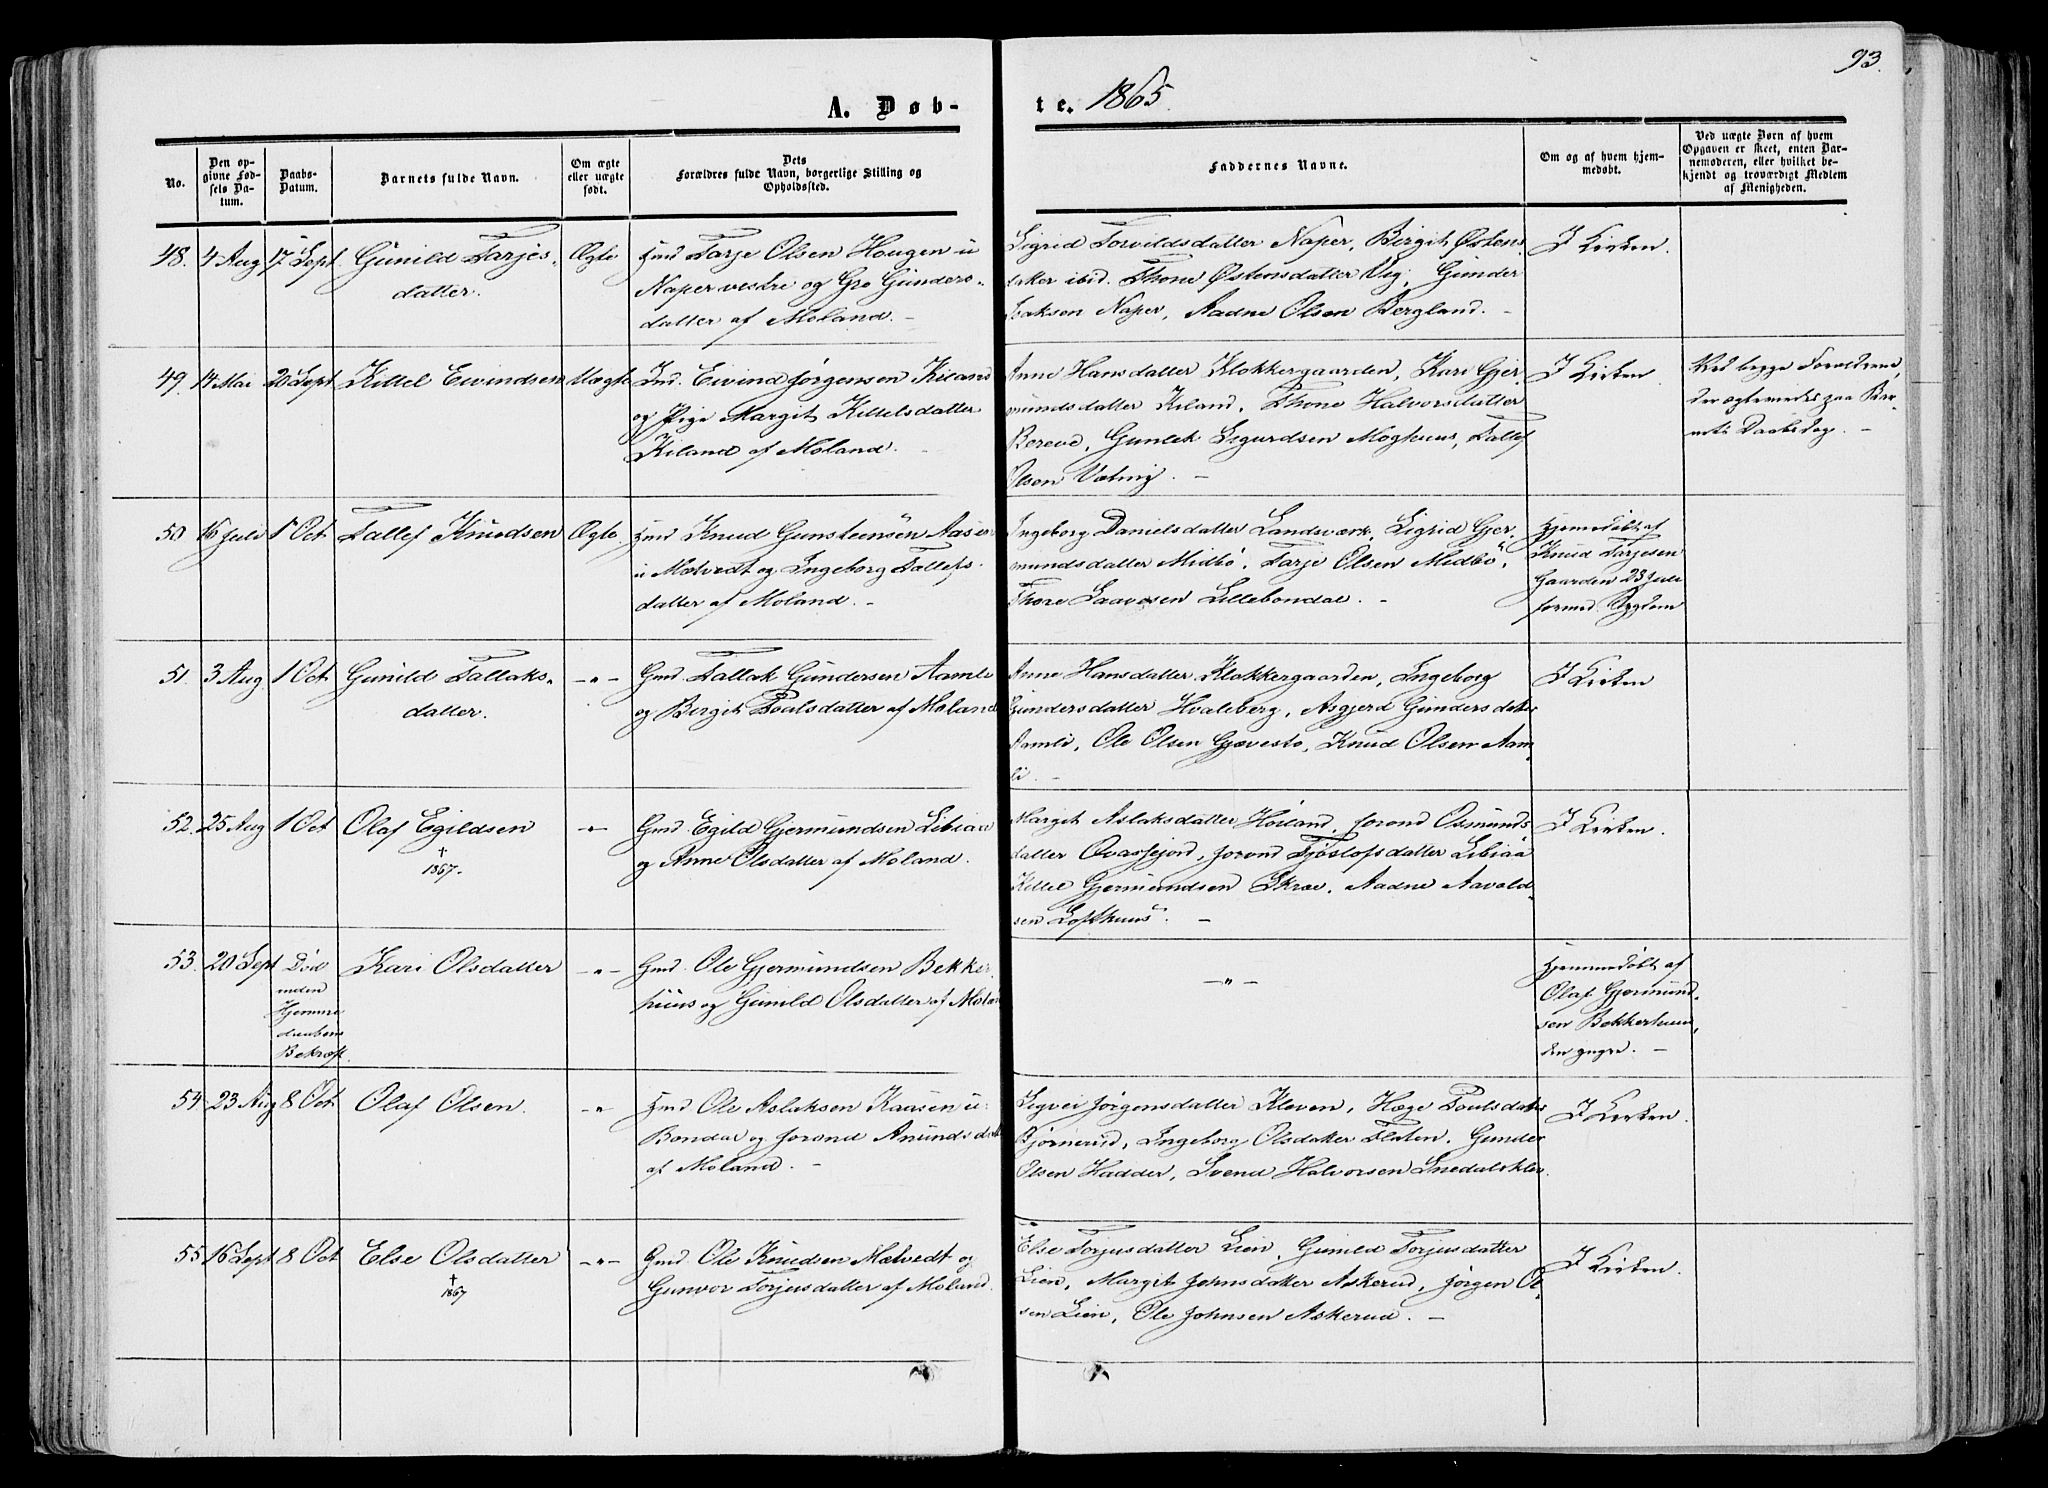 93.
A. Døb-
te. 1865.
No.
Den op-
givne Fød-
sels Da-
tum.
Daabs-
Datum.
Barnets fulde Navn.
Om ægte
eller uægte
født.
Dets
Forældres fulde Navn, borgerlige Stilling og
Opholdssted.
Faddernes Navne.
Om og af hvem hjem-
medøbt.
Ved uægte Børn af hvem
Opgaven er skeet, enten Bar-
nemoderen, eller hvilket be-
kjendt og troværdigt Medlem
af Menigheden.
48. 4 Aug 17 Sept Gunild Tarjes-
datter.
Ægte
Hmd Tarje Olsen Haugen u
Naper vestre og Gro Gunders-
datter af Moland. –
Sigrid Torvildsdatter Naper, Birgit Østens
datter ibid. Thone Østensdatter Veg, Gunder
Isaksen Naper, Aadne Olsen Bergland. –
I Kirken.
49. 14 Mai 20 Sept Kittel Eivindsen Uægte
Ind. Eivind Jørgensen Kiland
og Pige Margit Kittelsdatter
Kiland af Moland.
Anne Hansdatter Klokkergaarden, Kari Gjer-
mundsdatter Kiland, Thone Halvorsdatter
Boreve, Gunlek Sigurdsen Moghuus, Tallef
Olsen Vating. –
I Kirken
Ved begge Forældrene,
der ægteviedes paa Bar-
nets Daabsdag. –
50 16 Juli 1 Oct Tallef Knudsen Ægte.
Hmd Knud Gunsteensen Aasen
u Mælvedt og Ingeborg Tallefs-
datter af Moland. –
Ingeborg Danielsdatter Landsværk, Sigrid Gjer-
mundsdatter Midbø, Tarje Olsen Midbø,
Thore Saavesen Lillebondal. –
Hjemmedøbt af
Knud Tarjesen
Gaarden 23 Juli
formed. Sygdom
51. 3 Aug. 1 Oct Gunild Tallaks-
datter.
–"–
Gmd. Tallak Gundersen Aamli
og Birgit Poulsdatter af Moland
Anne Hansdatter Klokkergaarden, Ingeborg
Gundersdatter Hvaleberg, Asgjerd Gundersdatter
Aamli, Ole Olsen Gjævesto, Knud Olsen Aam-
li. –
I Kirken
52. 25 Aug 1 Oct Olaf Egildsen
† 1867.
–"–
Gmd. Egild Gjermundsen Libiaa
og Anne Olsdatter af Moland.
Margit Aslaksdatter Høiland, Jorond Osmunds-
datter Qvassejord, Jorond Tjøstofsdatter Libiaa
Kittel Gjermundsen Skræ, Aadne Aavald-
sen Lofthuus. –
I Kirken.
53. 20 Sept Død
uden
Hjemme
daabens
Bekræft.
Kari Olsdatter
–"–
Gmd. Ole Gjermundsen Bekker
huus og Gunild Olsdatter af Moland
–"–
Hjemmedøbt af
Olaf Gjermund-
sen Bekkerhuus,
den yngre. –
54 23 Aug 8 Oct Olaf Olsen.
–"–
Hmd. Ole Aslaksen Kaasen u
Bondal og Jorond Anundsdatter
af Moland. –
Sigvei Jørgensdatter Kleven, Hæge Poulsdatter
Bjørnerud, Ingeborg Olsdatter Flaten, Gunder
Olsen Hadder, Svend Halvorsen Snedalsklev.
I Kirken.
55 16 Sept 8 Oct Else Olsdatter
† 1867
–"–
Gmd. Ole Knudsen Mælvedt og
Gunvor Torjusdatter af Moland.
Else Torjusdatter Lien, Gunild Torjusdatter
Lien, Margit Johnsdatter Askerud, Jørgen Ol-
sen Lien, Ole Johnsen Askerud. –
I Kirken.